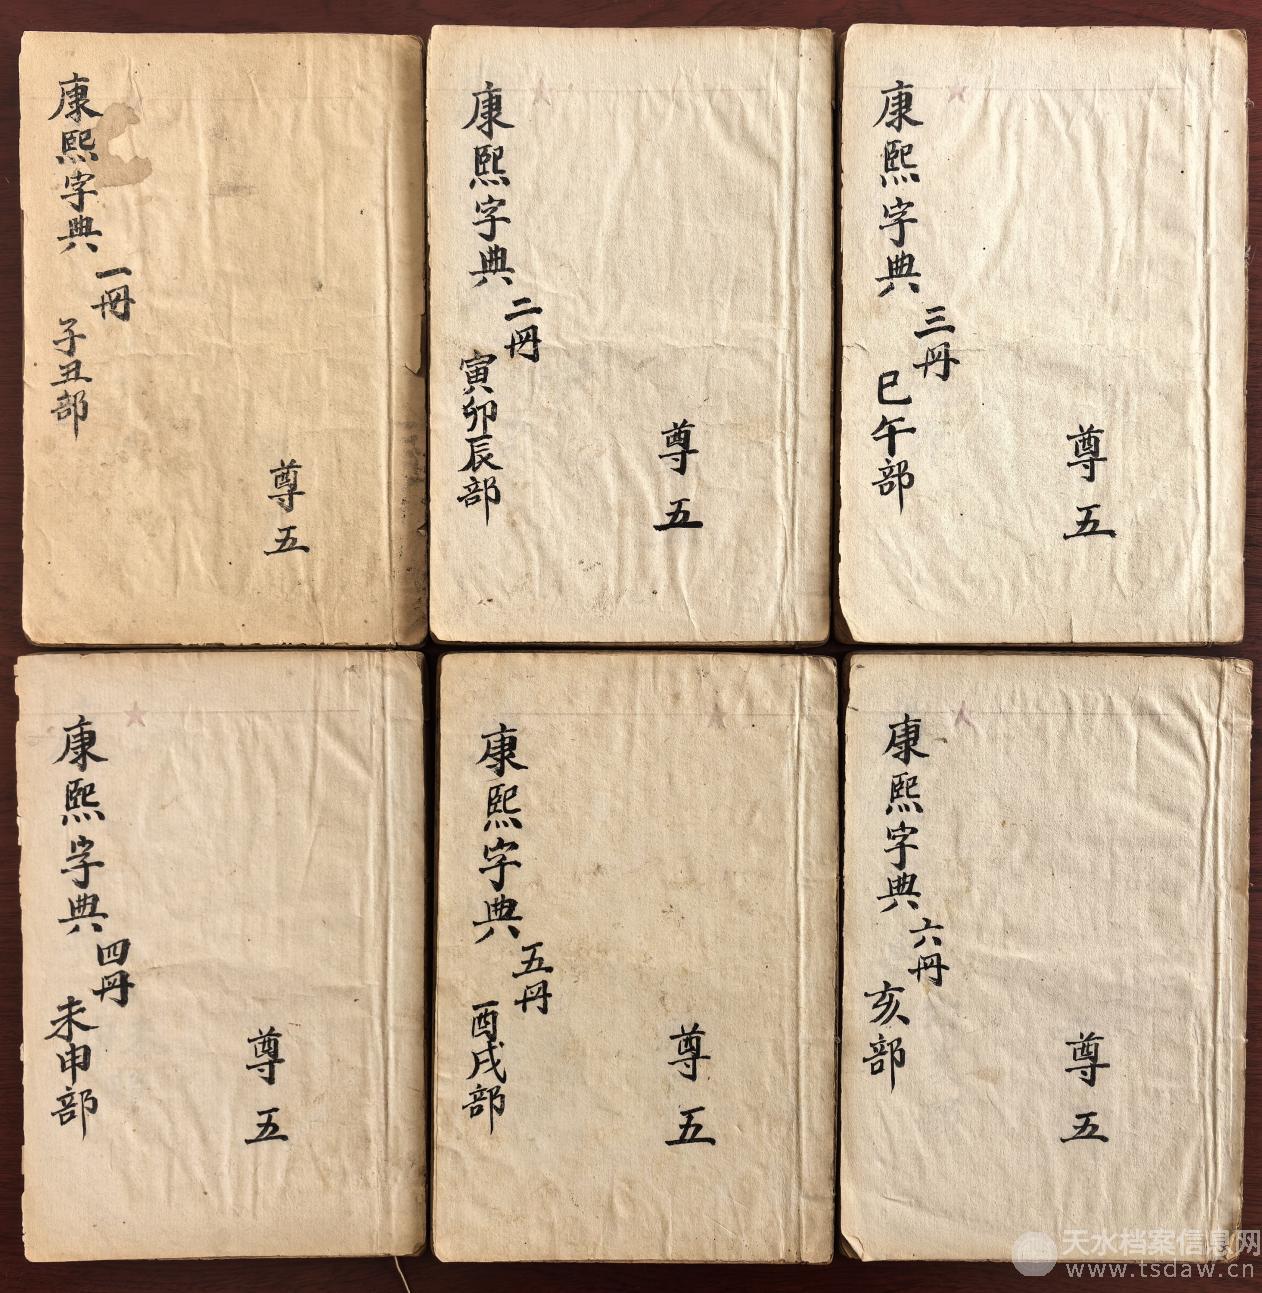 康熙字典
一冊
子丑部
尊五
康熙字典
二冊
寅卯辰部
尊五
康熙字典
三冊
巳午部
尊五
康熙字典
四冊
未申部
尊五
康熙字典
五冊
酉戌部
尊五
康熙字典
六冊
亥部
尊五
天水档案信息网
www.tsdaw.cn